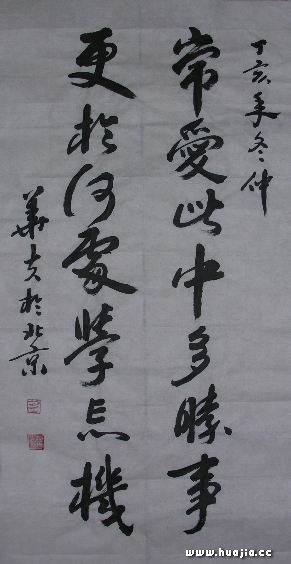 丁亥年冬仲
常愛此中多勝事
更於何處學忘機
華夫於北京
www.huajia.cc